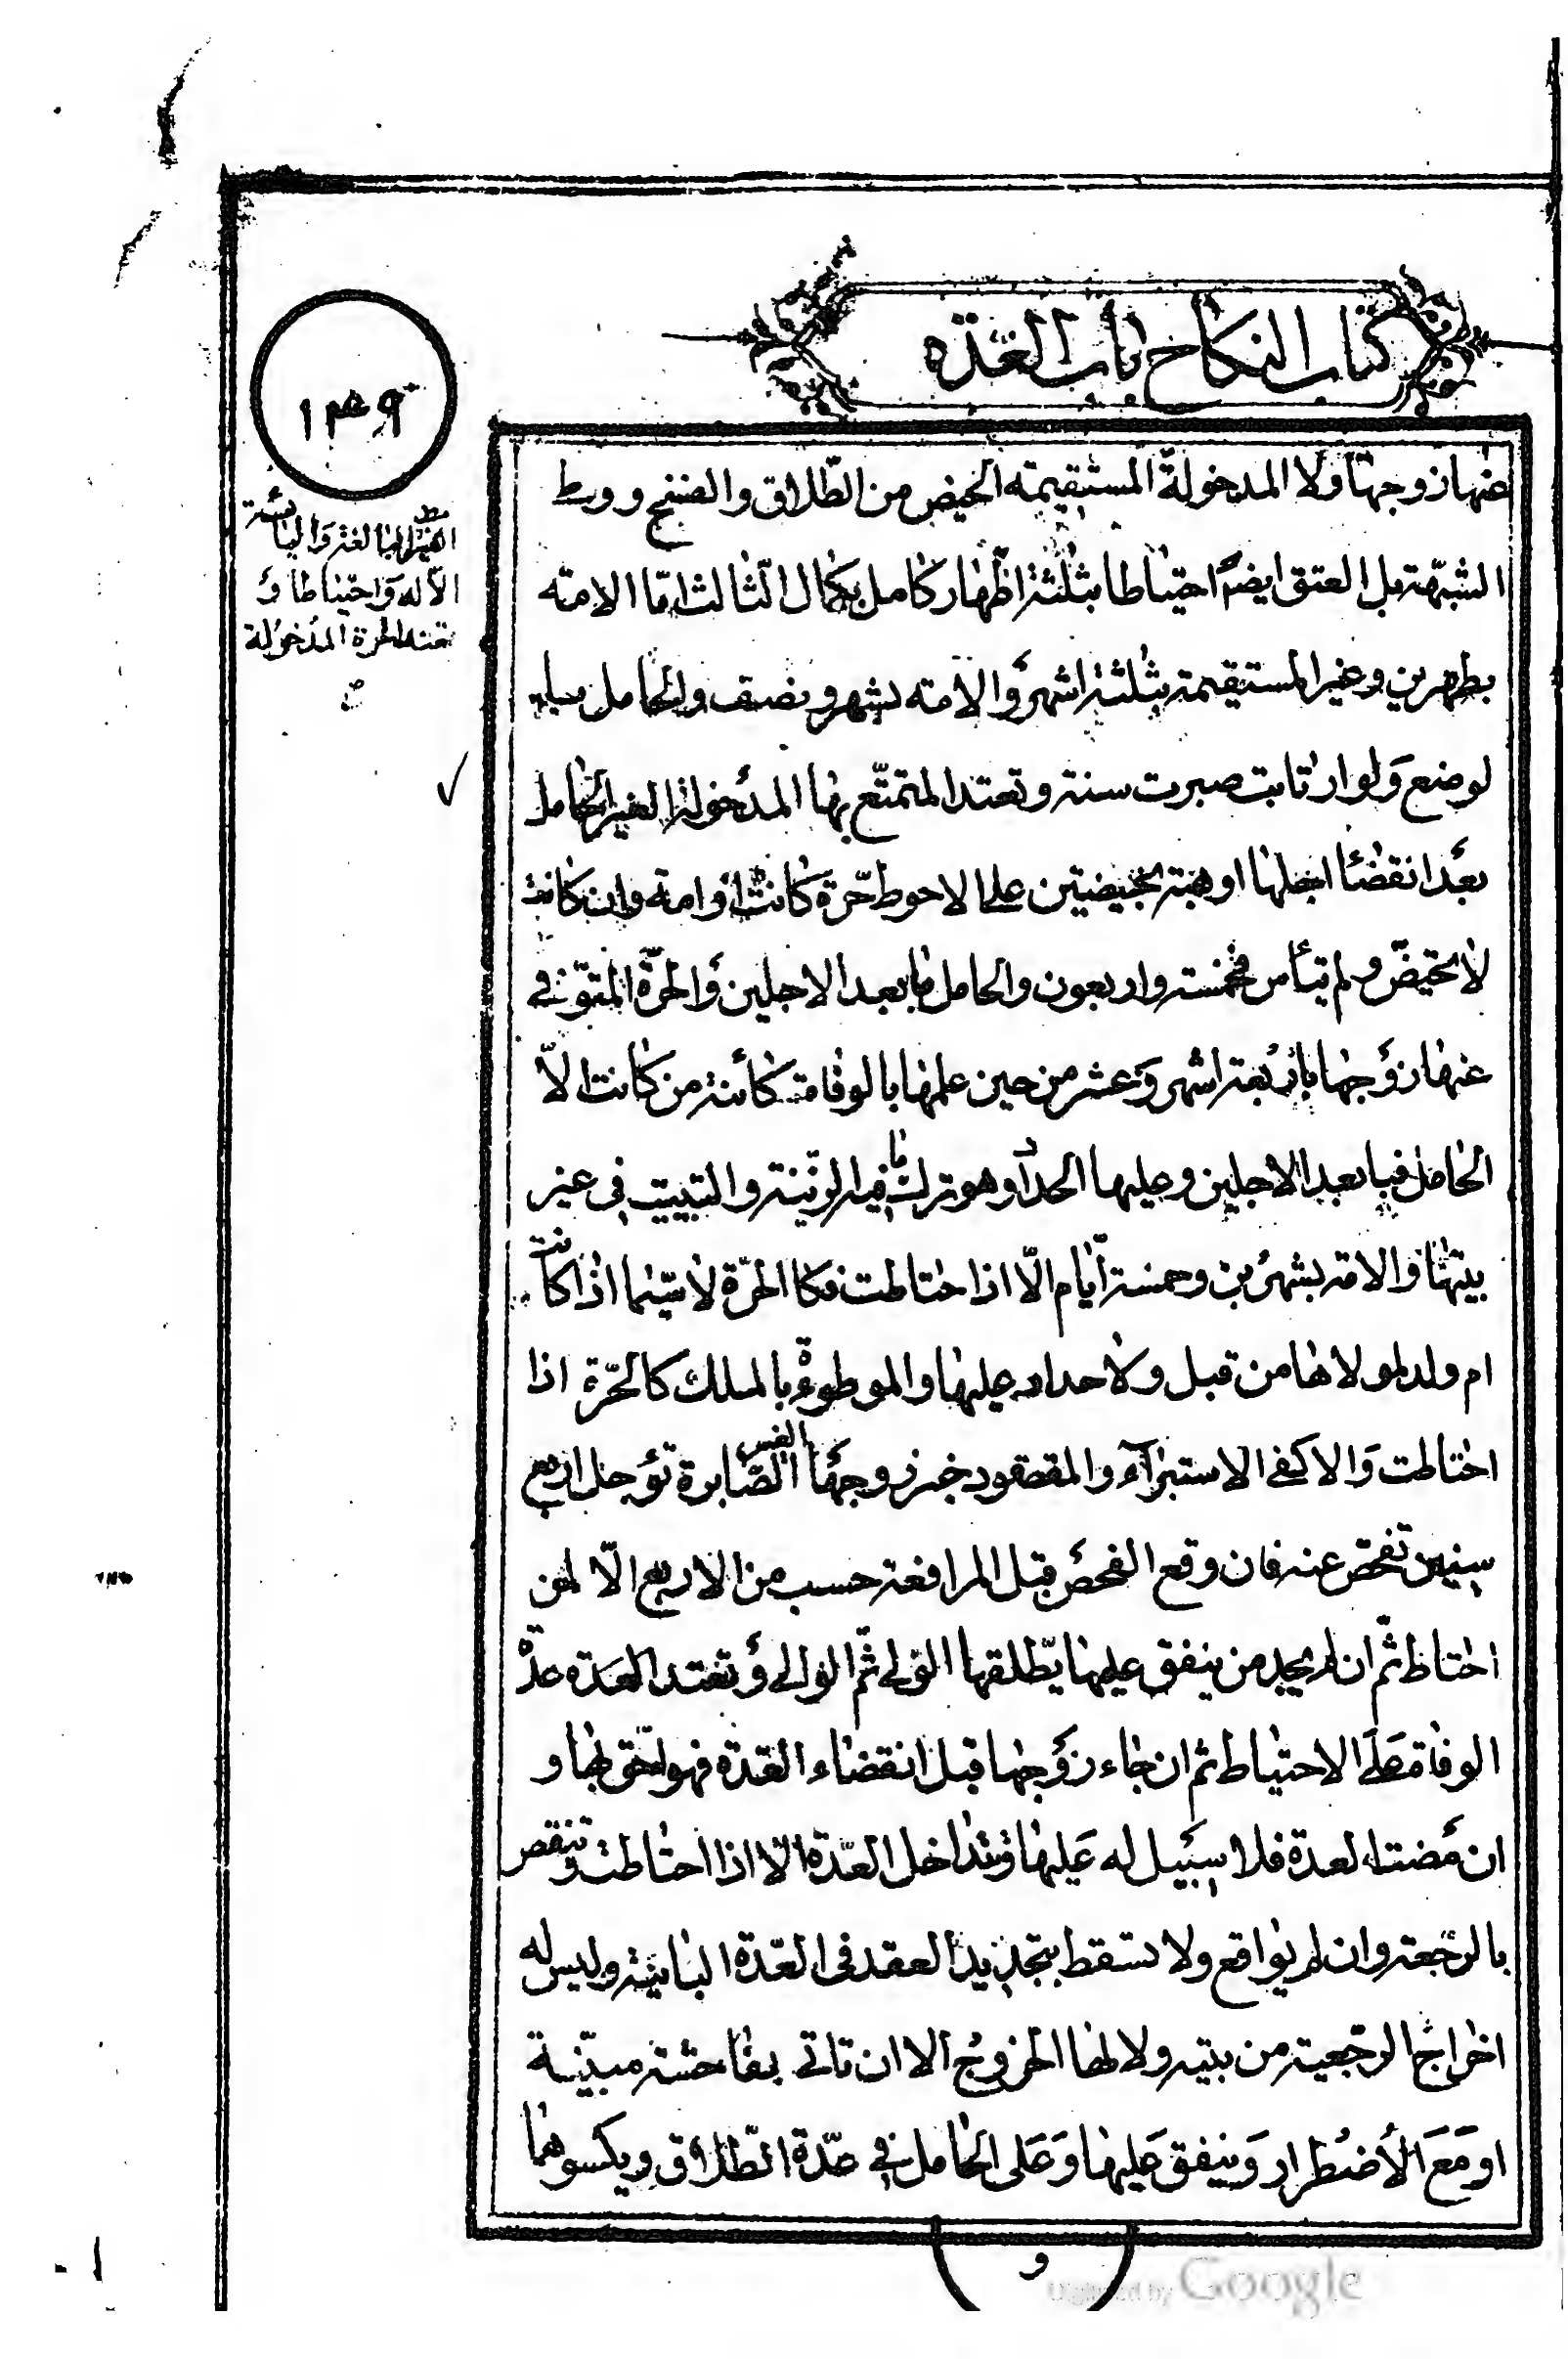 كتاب النكاح باب العدّه
١٣٩
الغير البالغة واليائسة
الا له واحتياطا و
تعتد الحرة المدخولة
ص
عنها زوجها ولا المدخولة المستقيمة الحيض من الطّلاق والفسخ ووطى
الشبهة بل العتق ايضاً احتياطا بثلثة اظهار كامل بكمال الثالث امّا الامة
بطهرين وغير المستقيمة بثلثة اشهر والامة بشهر ونصف والحامل
لوضع ولو ارتابت صبرت سنة وتعتد المتمتّع بها المدخولة الغير الحامل
بعد انقضا اجلها او هبته بحيضتين على الاحوط حرّة كانت او امة وان كانت
لا تحيض ولم تيأس فخمسة واربعون والحامل بابعد الاجلين والحرّة المتوفّى
عنها زوجها باربعة اشهر وعشر من حين علمها بالوفاة كائنة من كانت الّا
الحامل فبابعد الاجلين وعليها الحداد وهو ترك ما فيه الزّينة والتبييت فى غير
بيتها والامة بشهرين وخمسة ايّام الّا اذا احتاطت فكا الحرّة لا سيّما اذا كانت
ام ولد لمولاها من قبل ولا حداد عليها والموطوءة بالملك كالحرّة اذا
احتاطت والا كفى الاستبراء والمفقود خبر زوجها الغير الصّابرة تؤجل اربع
سنين تفحّص عنه فان وقع الفحص قبل المرافعة حسب من الاربع الّا لمن
احتاط ثمّ ان لم يجد من ينفق عليها يطلّقها الولى ثمّ الوالى وتعتد العدّه عدّة
الوفاة على الاحتياط ثم ان جاء زوجها قبل انقضاء العدّة فهو احق بها و
ان مضت العدة فلا سبيل له عليها وتتداخل العدّة الّا اذا احتاطت وتنقض
بالرجعة وان لم يواقع ولا تسقط بتجديد العقد فى العدّة البائنة وليس له
اخراج الرجعية من بيته ولا لها الخروج الا ان تاتى بفاحشة مبيّنة
او مع الاضطرار وينفق عليها وعلى الحامل فى عدّة الطّلاق ويكسوهما
و
Digitized by Google